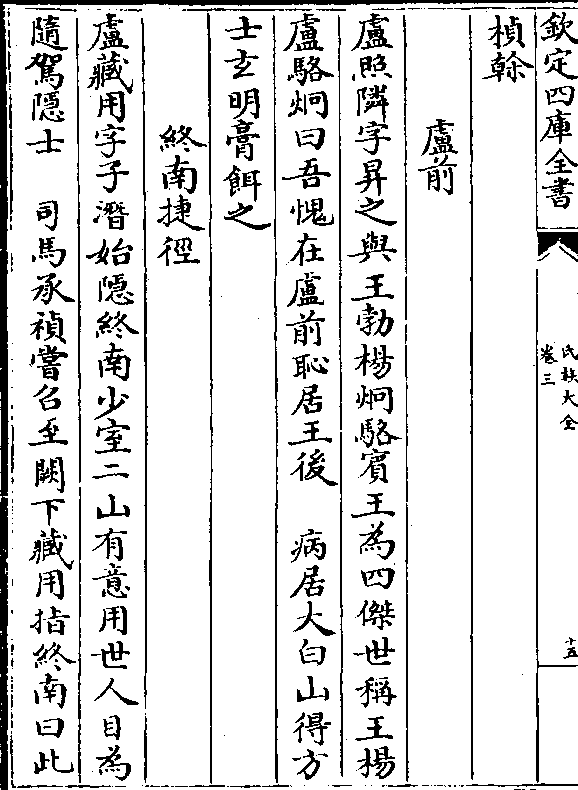 欽定四庫全書
氏族大全
卷三
十五
楨榦
盧前
盧照隣字昇之與王勃楊炯駱賓王為四傑世稱王楊
盧駱炯曰吾愧在盧前恥居王後　病居大白山得方
士玄明膏餌之
終南捷徑
盧藏用字子潛始隱終南少室二山有意用世人目為
隨駕隱士　司馬承禎嘗召至闕下藏用指終南曰此